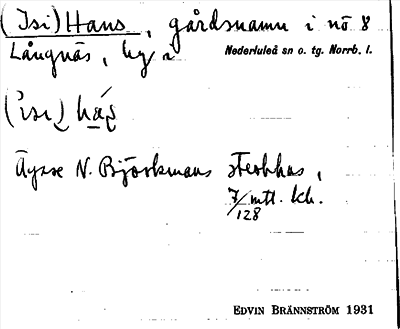 (Isi)Hans, gårdsnamn i nö 8
Långnäs, by i Nederluleå sn o. tg. Norrb. l.
Äysse N. Björkmans sterbhus,
7/128 mtl. kh.
EDVIN BRÄNNSTRÖM 1931